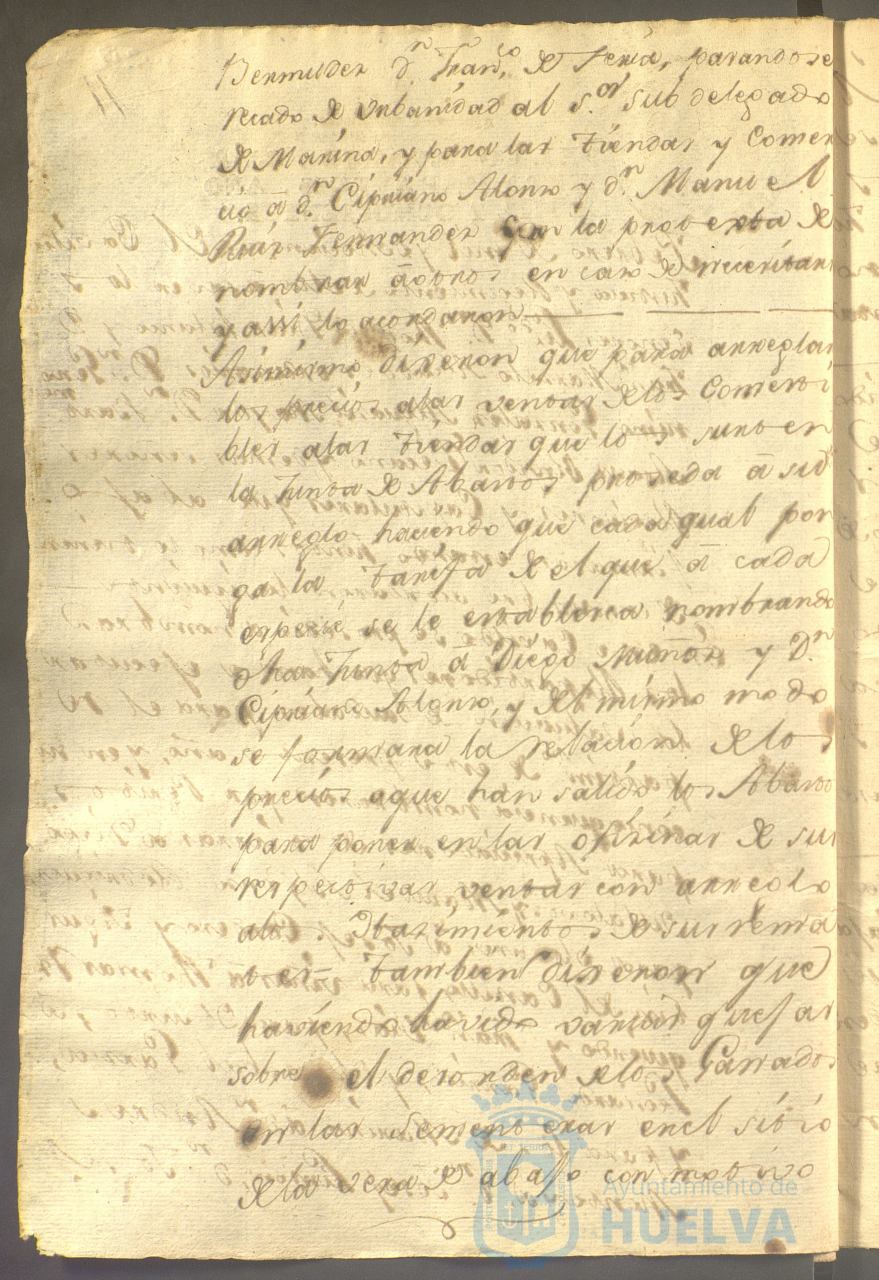 11
Bermudez dn. Franco. de Feria, parandose
recado de urbanidad al sor. subdelegado
de Marina, y para las tiendas y Comer
cio á dn. Cipriano Alonso y dn. Manuel
Ruiz Fernandez con la protexta de
nombrar á otros en caso de necesitarse
y assi lo acordaron
Asimismo dixeron que para arreglar
los precios a las ventas de los Comesti
bles a las tiendas que lo sursen
la Junta de Abastos proseda á su
arreglo haciendo que cada qual pon
ga la tarifa de el que á cada
espesie se le establesca nombrando
dha Junta á Diego Muñoz y Dn.
Cipriano Alonso, y del mismo modo
se formara la relacion de los
precios a que han salido los Abastos
para poner en las ofisinas de sus
respectivas ventas con arreglo
a los de sus rema
tes = tambien dixeron que
haviendo havido varias quejas
sobre el desorden de los Ganados
en las Sementeras en el sitio
de la vera de abajo con motivo
Ayuntamiento de
HUELVA